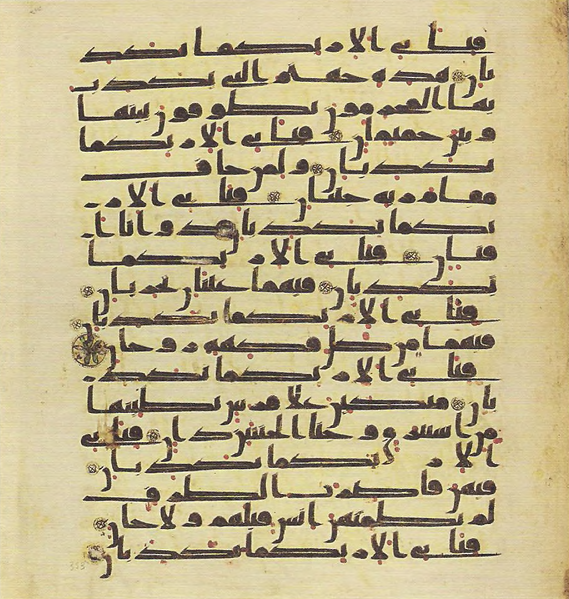 فباي الا ربكما تكذ
بان هذه جهنم التي يكذب
بها المجرمون يطوفون بينها
وبين حميم ان فباي الا ربكما
تكذبان ولمن خاف
مقام ربه جنتان فباي الا
ربكما تكذبان ذواتا ا
فنان فباي الا ربكما
تكذبان فيهما عينان تجريان
فباي الا ربكما تكذبان
فيهما من كل فكهة زوجان
فباي الا ربكما تكذ
بان متكين على فرش بطاينها
من استبرق وجنا الجنتين دان فباي
الا ربكما تكذبان
فيهن قاصرت الطرف
لم يطمثهن انس قبلهم ولا جان
فباي الا ربكما تكذبان